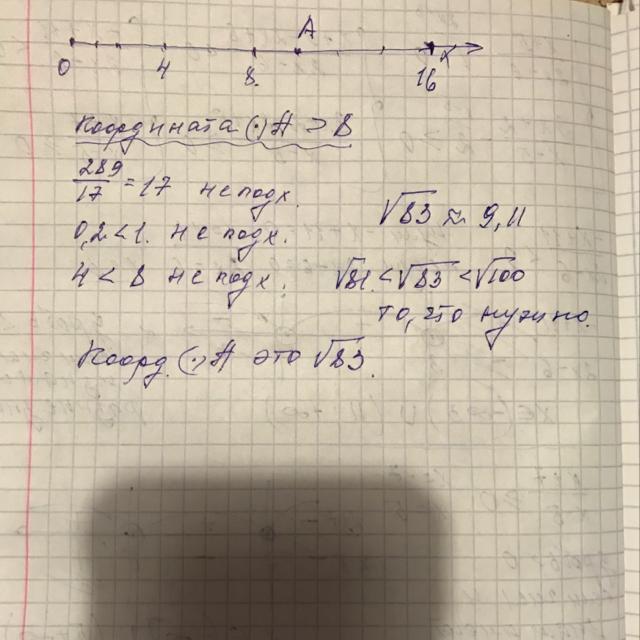 A
0 4 8. 16 x
Координата (·) A > 8
289/17 = 17 не подх.
√83 ≈ 9,11
0,2 < 1. не подх.
4 < 8 не подх.
√81 < √83 < √100
то, что нужно.
Коорд. (·) A это √83.